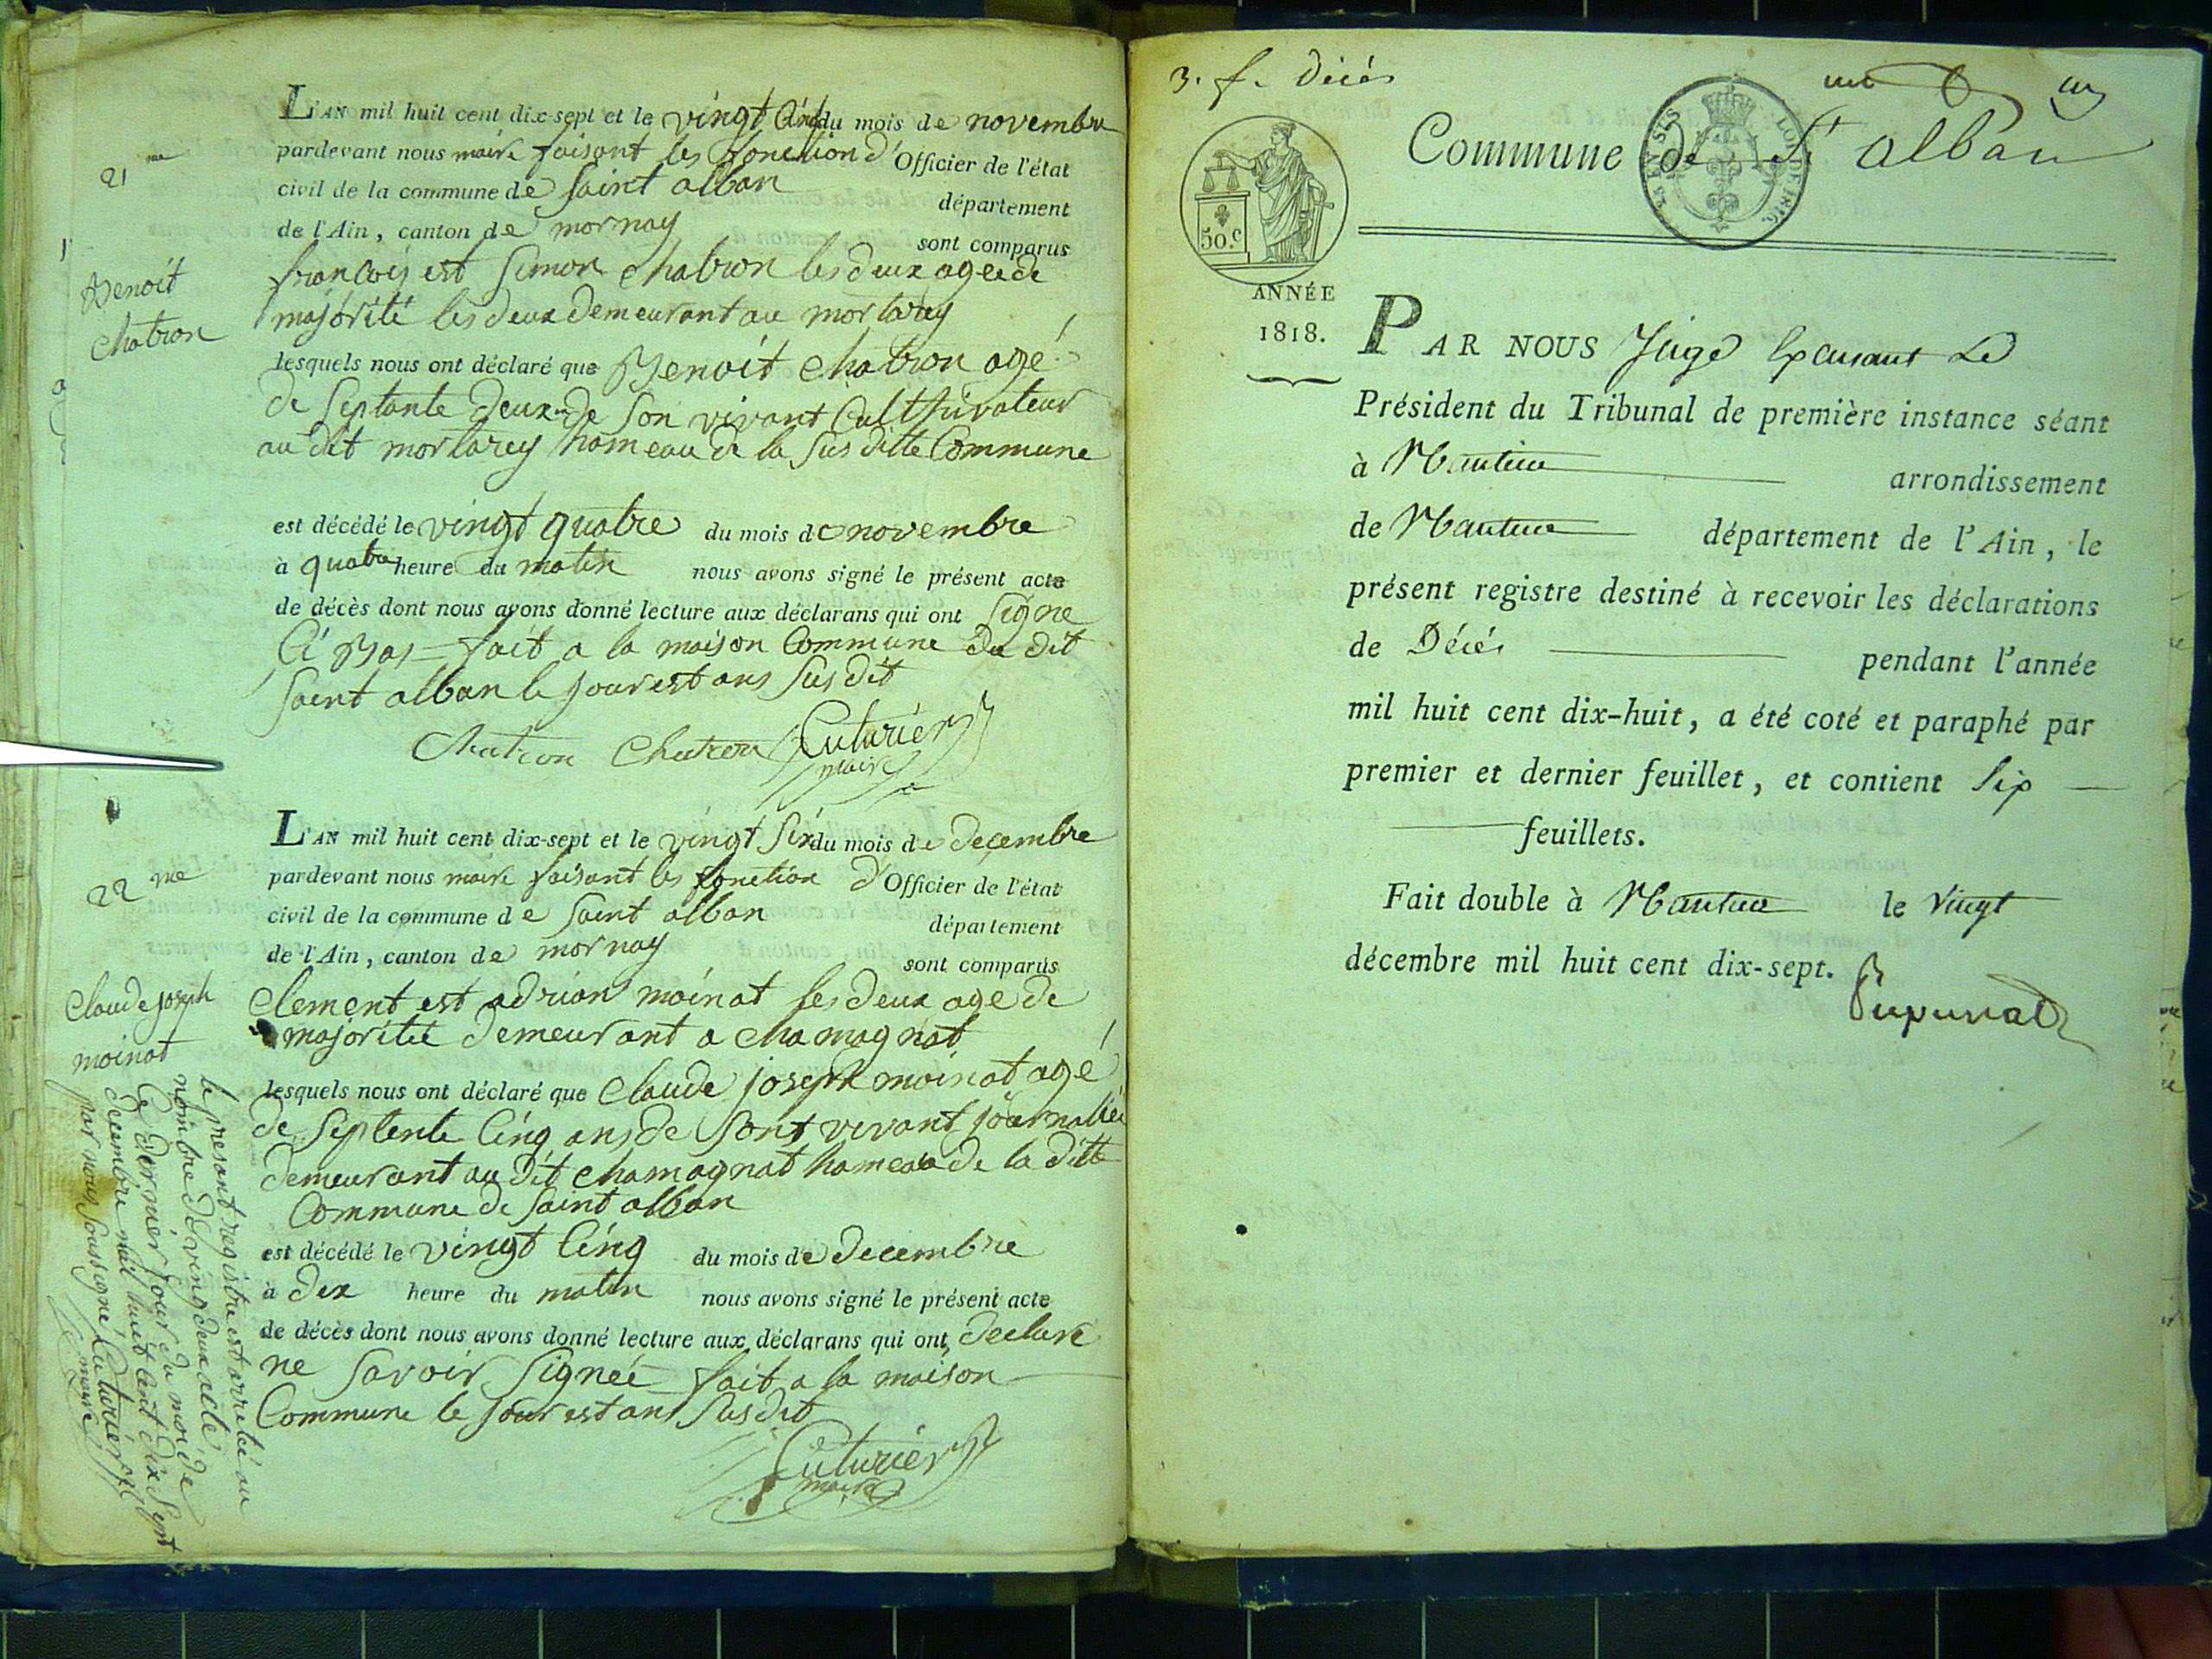 21me
Benoit
Chatron
L'AN mil huit cent dix-sept et le vingt Cinq du mois de novembre
pardevant nous maire faisant les fonction d'Officier de l'état
civil de la commune de Saint alban département
de l'Ain, canton de mornay sont comparus
francois est Simon Chatron les deux agée de
majórité les deux Demeurant au mortarey
lesquels nous ont déclaré que Benoit Chatron agé
de Septante deux de Son vivant Cultthivateur
au dit mortarey hameau de la Sus ditte Commune
est décédé le vingt quatre du mois de novembre
à quatre heure du matin nous avons signé le présent acte
de décès dont nous avons donné lecture aux déclarans qui ont Signe
Ci Bas = fait a la maison Commune du dit
Saint alban le Jour est ans Sus dit
Chatron Chatron Cuturier
maire
22me
Claude joseph
moinat
L'AN mil huit cent dix-sept et le vingt Six du mois de Decembre
pardevant nous maire faisant les fonction d'Officier de l'état
civil de la commune de Saint alban département
de l'Ain, canton de mornay sont comparus
Clement est adrian moinat les deux age de
majoritée Demeurant a Chamagnat
lesquels nous ont déclaré que Claude joseph moinat agé
de Septente Cinq ans de Sont vivant journalier
Demeurant au Dit Chamagnat hameau de la ditte
Commune de Saint alban
est décédé le vingt Cinq du mois de Decembre
à Dix heure du matin nous avons signé le présent acte
de décès dont nous avons donné lecture aux déclarans qui ont Declare
ne Savoir Signée fait a la maison
Commune le Jour est ans Sus dit
Cuturier
maire
le presant registre est arreteé au
nombre de ving deux acte
le dernier jour du moi de
decembre mil huit Cent dix Sept
par nous Soussigné Cuturier
maire
3. f. Décés
Commune de St alban
50.c
ANNÉE
1818.
PAR NOUS Juge Exerçant Le
Président du Tribunal de première instance séant
à Nantua arrondissement
de Nantua département de l'Ain, le
présent registre destiné à recevoir les déclarations
de Décés pendant l'année
mil huit cent dix-huit, a été coté et paraphé par
premier et dernier feuillet, et contient Six
feuillets.
Fait double à Nantua le Vingt
décembre mil huit cent dix-sept.